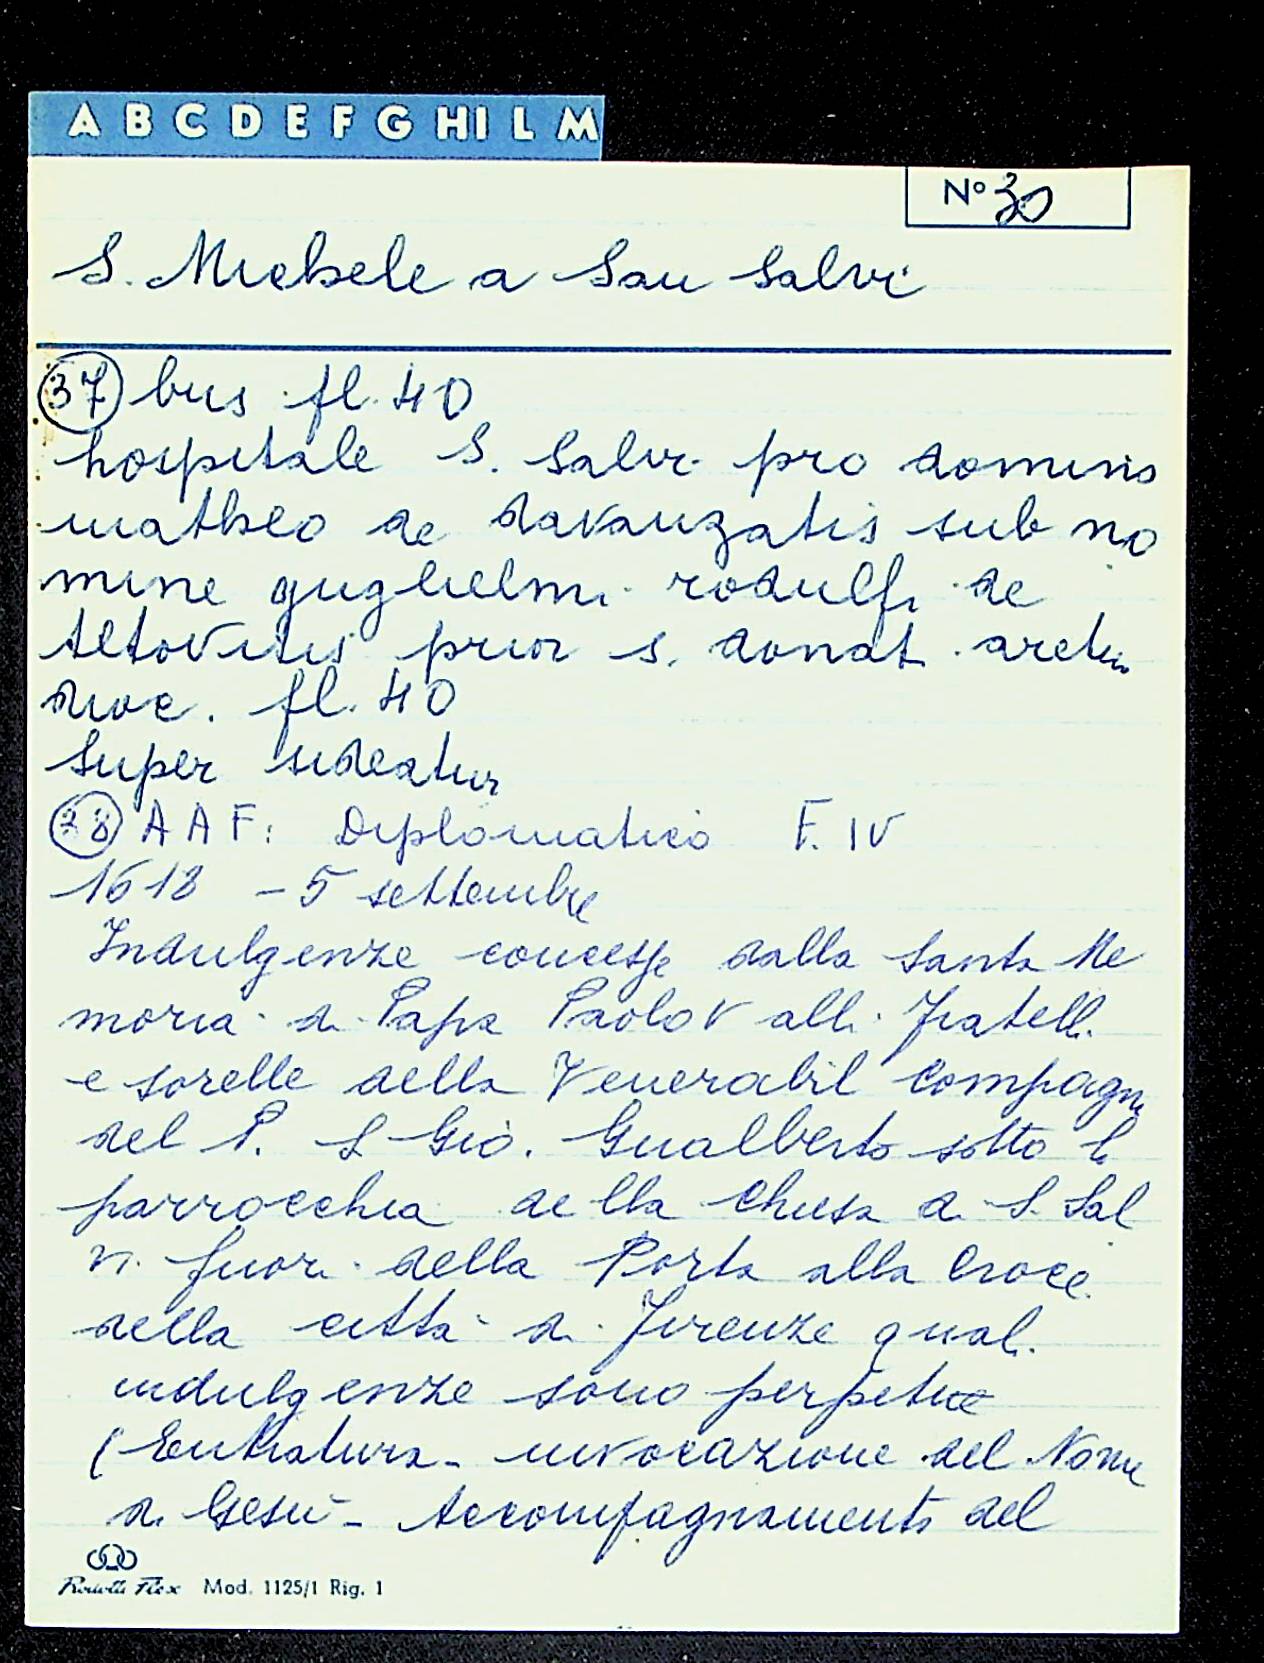 A B C D E F G HI L M
N° 30
S. Michele a San Salvi
37 bus fl. 40
hospitale S. Salvi pro dominis
matheo de davanzatis sub no
mine guglielmi rodulfi de
Altovitis prior s. donat. aretin
dioc. fl. 40
Super sideatur
38 AAF: Diplomatico F. IV
1618 - 5 settembre
Indulgenze concesse dalla Santa Me
moria di Papa Paolo V alli Fratelli
e sorelle della Venerabil Compagni
del P. S. Gio. Gualberto sotto la
parrocchia della Chiesa di S. Sal
vi fuori della Porta alla Croce
della città di Firenze quali
indulgenze sono perpetue
(Entratura - invocazione del Nome
di Gesù - Accompagnamento del
Mod. 1125/1 Rig. 1